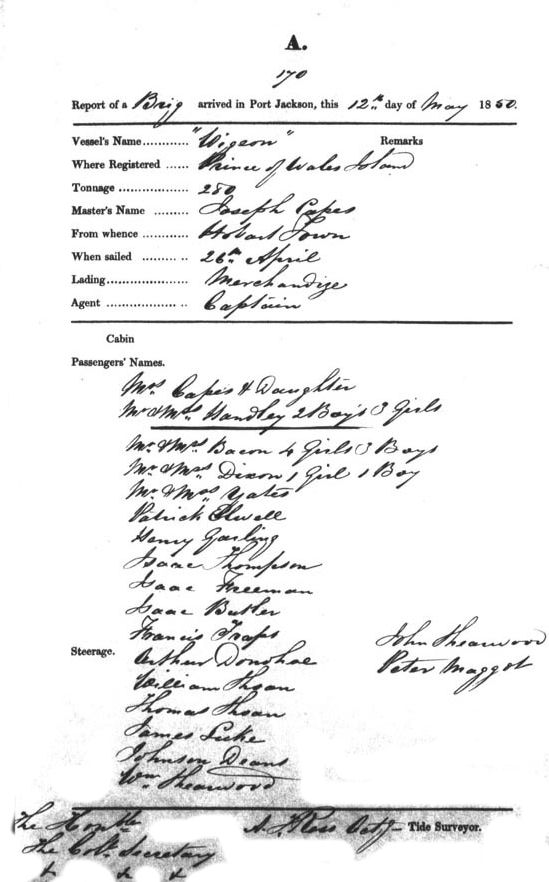 A.
170
Report of a Brig arrived in Port Jackson, this 12th day of May 1850.
Vessel's Name "Wigeon" Remarks
Where Registered Prince of Wales Island
Tonnage 280
Master's Name Joseph Capes
From whence Hobart Town
When sailed 26th April
Lading Merchandize
Agent Captain
Cabin
Passengers' Names.
Mrs Capes & Daughter
Mr & Mrs Handley 2 Boys 3 Girls
Mr & Mrs Bacon 4 Girls 3 Boys
Mr & Mrs Dixon 1 Girl 1 Boy
Mr & Mrs Yates
Patrick Elwell
Henry Garling
Isaac Thompson
Isaac Freeman
Isaac Butler
Francis Traps
Steerage. Arthur Donohoe
William Thoan
Thomas Thoan
James Luke
Johnson Deans
Wm Shearwood
John Shearwood
Peter Maggot
The Honble
The Coll. Secretary
A. Ross Tide Surveyor.